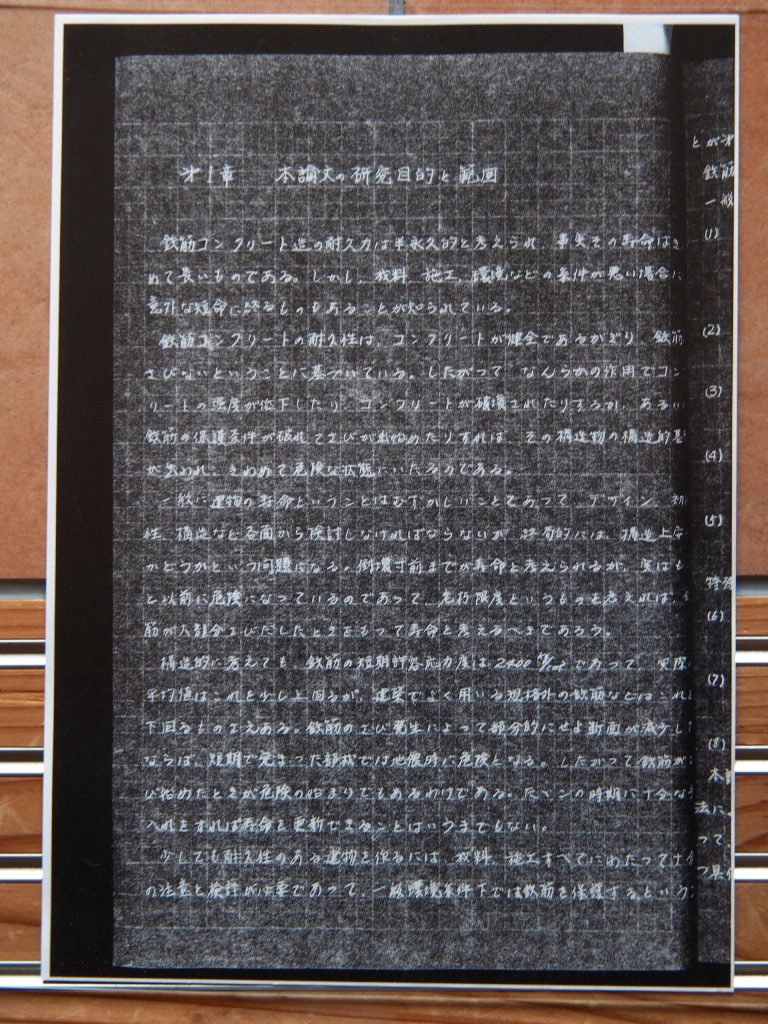 オ1章 本論文の研究目的と範囲
鉄筋コンクリート造の耐久力は半永久的と考えられ、事実その寿命はき
めて長いものである。しかし、材料、施工、環境などの条件が悪い場合に
意外な短命に終るものもあることが知られている。
鉄筋コンクリートの耐久性は、コンクリートが健全であるかぎり、鉄筋
さびないということに基づいている。したがつて、なんらかの作用でコン
リートの強度が低下したり、コンクリートが破壊されたりするか、あるい
鉄筋の保護条件が破れてさびが出始めたりすれば、その構造物の構造的基
が失われ、きわめて危険な状態にいたるのである。
一般に建物の寿命ということはむずかしいことであつて、デザイン、
性、構造など各面から検討しなければならないが、終局的には、構造上安
かどうかという問題になる。倒壊寸前までが寿命と考えられるが、実はも
と以前に危険になつているのであつて、
筋が大部分さびだしたときをもつて寿命と考えるべきであろう。
構造的に考えても、鉄筋の短期許容応力度は2400 であつて、実際
平均値はこれを少し上回るが、建築でよく用いる規格外の鉄筋などはこれ
下回るものさえある。鉄筋のさび発生によつて部分的にせよ断面が減少し
ならば、短期で定まつた部材では地震時に危険となる。したがつて鉄筋が
び始めたときが危険の始まりでもあるわけである。 この時期に十分な
入れをすれば寿命を更新できることはいうまでもない。
少しでも耐久性のある建物を作るには、材料、施工すべてにわたつて十分
の注意と検討が必要であつて、一般環境条件下では鉄筋を保護するという
とがオ
鉄筋
一般
(1)
(2)
(3)
(4)
(5)
特殊
(6)
(7)
(8)
本
法に
つて、
つ具